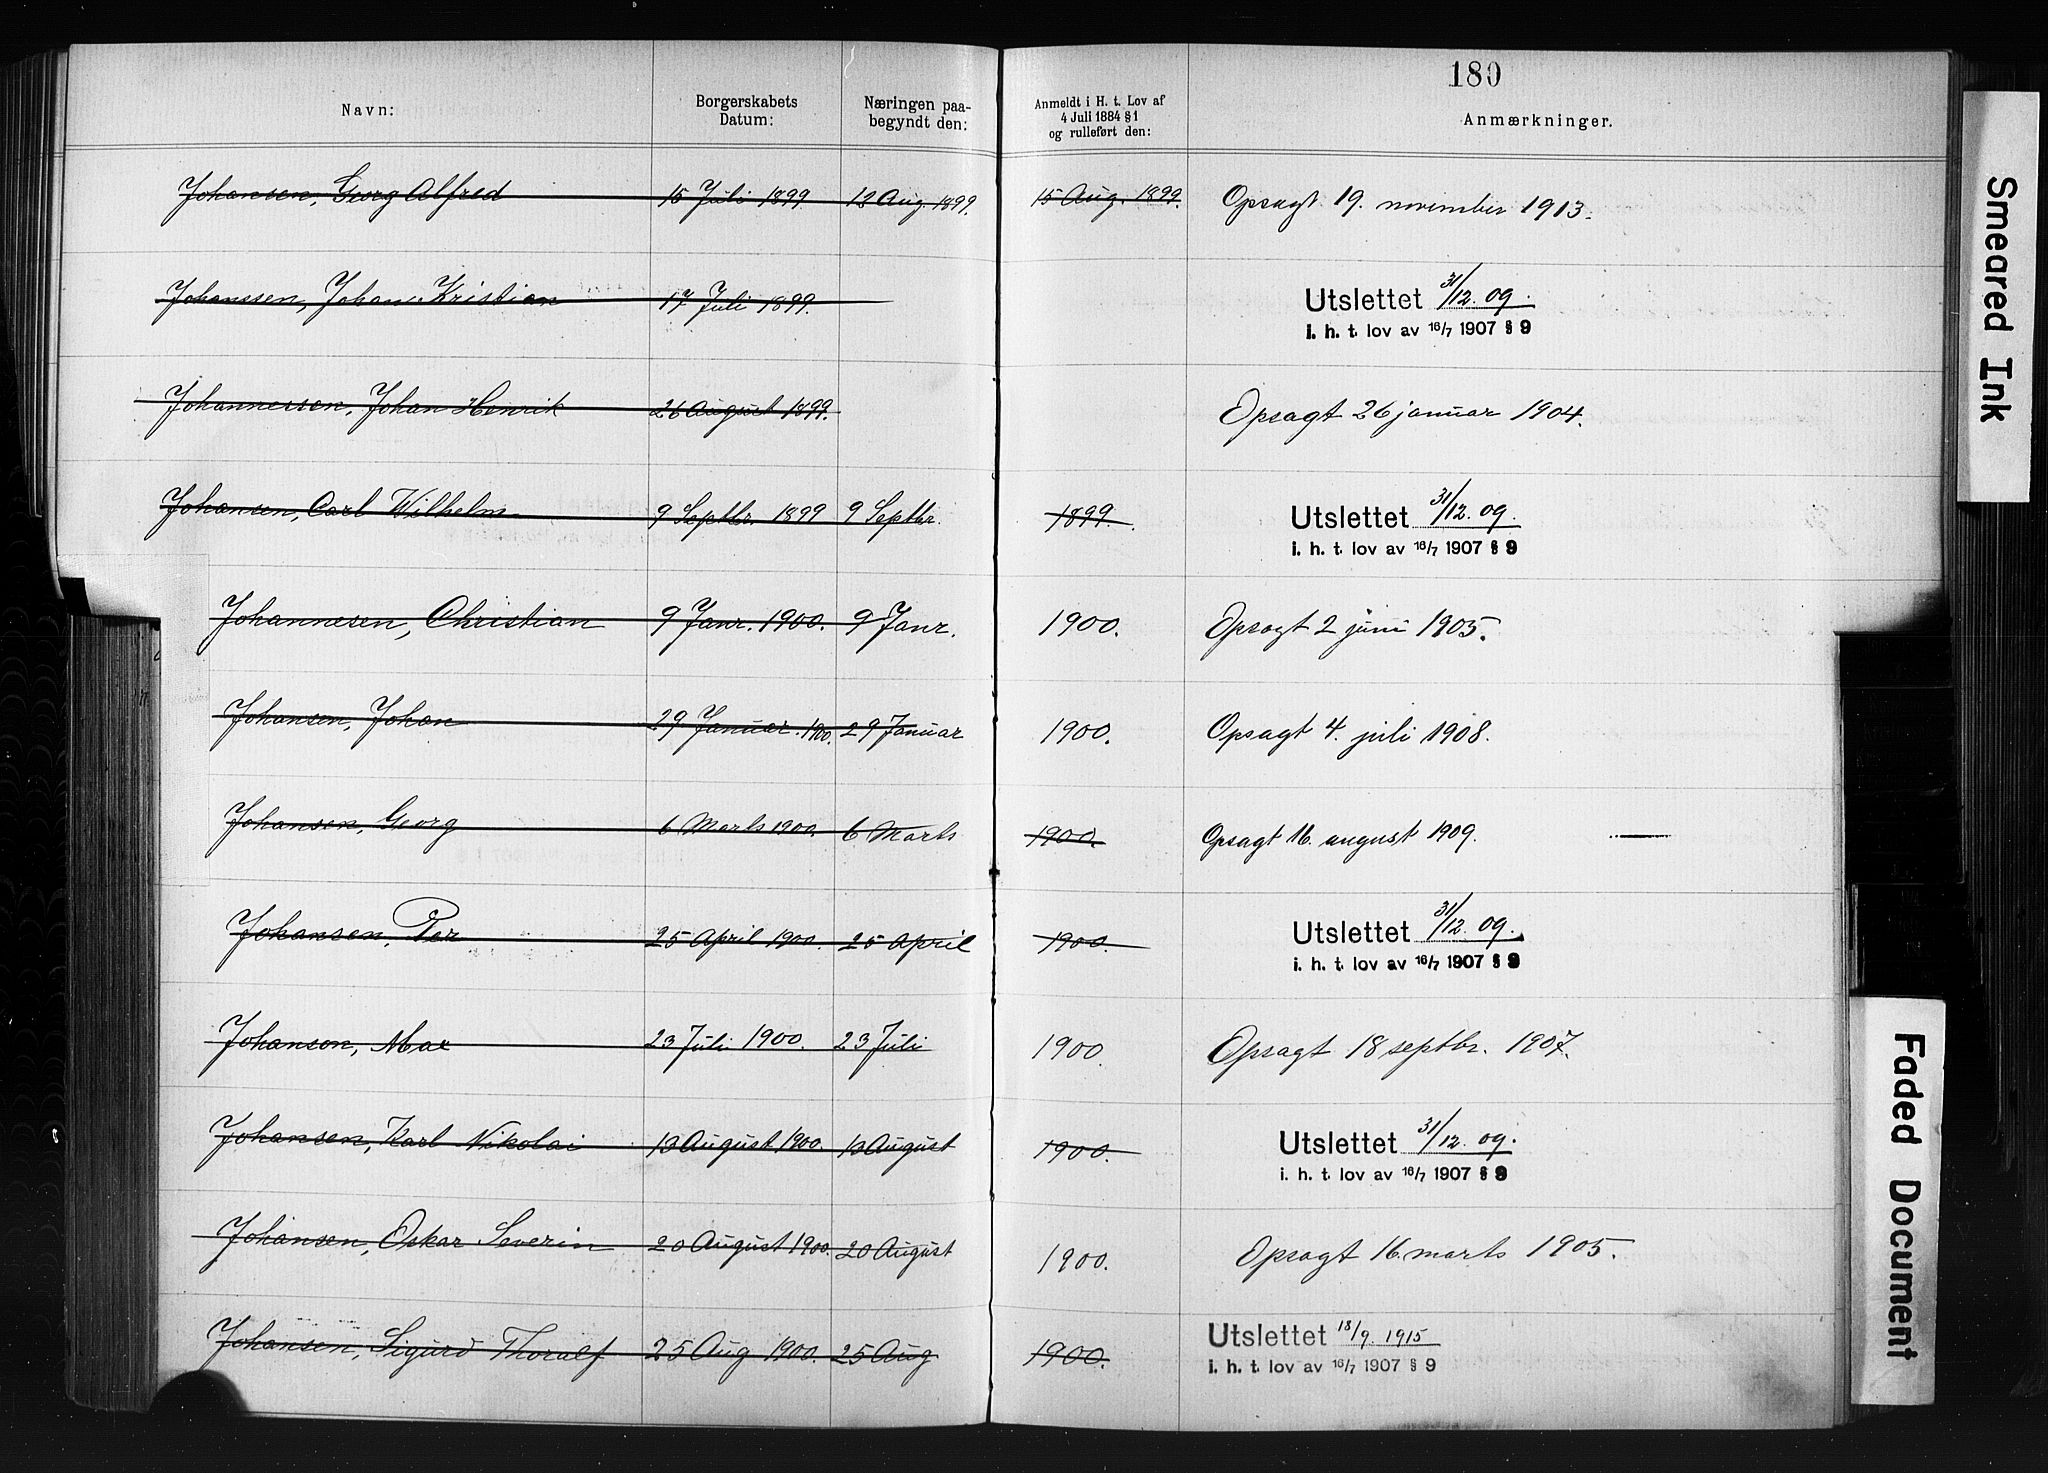 180
Navn: Borgerskabets Datum: Næringen paa-begyndt den: Anmeldt i H. t. Lov af 4 Juli 1884 § 1 og rulleført den: Anmærkninger.
Johansen, Georg Alfred 15 Juli 1899 12 Aug. 1899. 15 Aug. 1899. Opsagt 19. november 1913.
Johanssen, Johan Kristian 17 Juli 1899. Utslettet 31/12. 09.
i. h. t. lov av 16/7 1907 § 9
Johannessen, Johan Henrik 26 August 1899. Opsagt 26 januar 1904.
Johansen, Carl Wilhelm 9 Septbr. 1899 9 Septbr. 1899. Utslettet 31/12. 09.
i. h. t. lov av 16/7 1907 § 9
Johannesen, Christian 9 Janr. 1900. 9 Janr. 1900. Opsagt 2 juni 1905.
Johansen, Johan 29 Januar. 1900. 29 Januar 1900. Opsagt 4. juli 1908.
Johansen, Georg 6 Marts 1900. 6 Marts 1900. Opsagt 16. august 1909.
Johansen, Per 25 April 1900. 25 April 1900. Utslettet 31/12. 09.
i. h. t. lov av 16/7 1907 § 9
Johanson, Max 23 Juli 1900. 23 Juli 1900 Opsagt 18 septbr. 1907.
Johansen, Karl Nikolai 13 August 1900. 13 August 1900. Utslettet 31/12. 09.
i. h. t. lov av 16/7 1907 § 9
Johansen, Oskar Severin 20 August 1900. 20 August 1900. Opsagt 16. marts 1905.
Johansen, Sigurd Thoralf 25 Aug 1900. 25 Aug 1900. Utslettet 18/9. 1915
i. h. t. lov av 16/7 1907 § 9
Smeared Ink
Faded Document